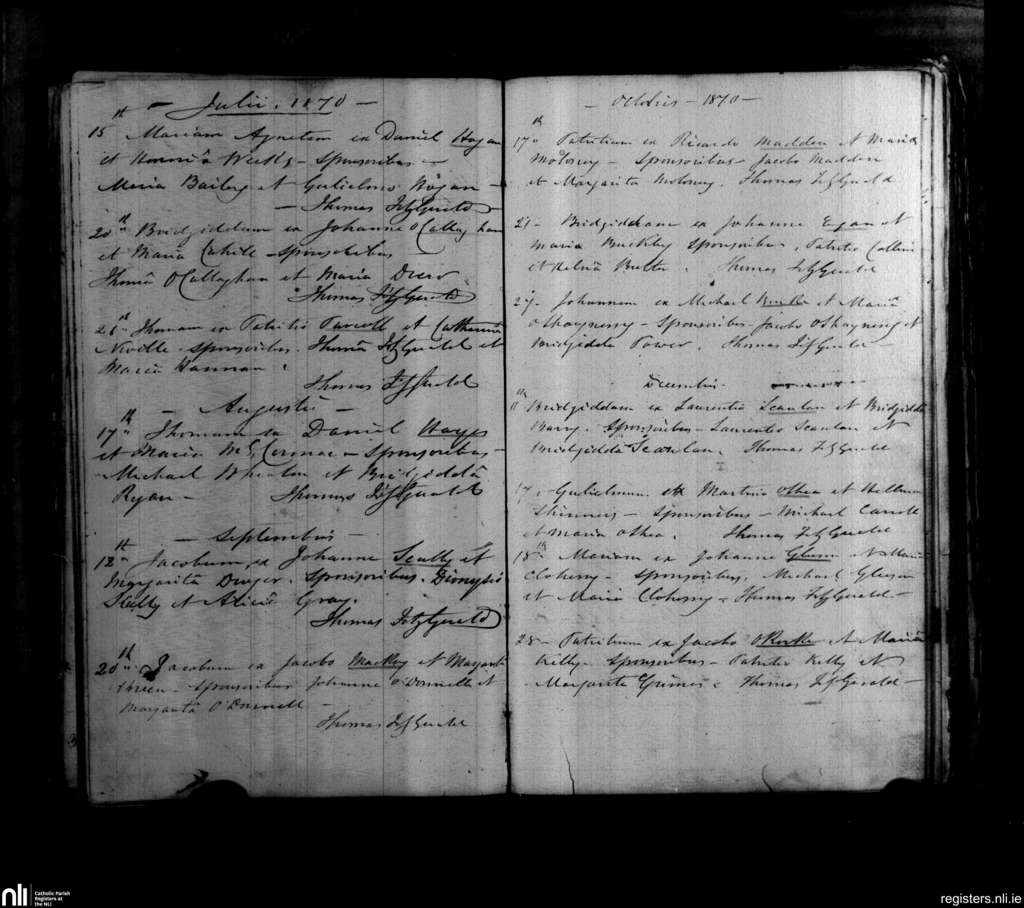 Julii. 1870
15th Mariam Agnetem ex Daniel Hogan
et Honoria Weeks - Sponsoribus -
Maria Bailey et Gulielmo Hogan -
- Thomas FitzGerald -
20th Bridgiddam ex Johanne O'Callaghan
et Maria Cahill - Sponsoribus
Thomâ O'Callaghan et Maria
Thomas FitzGerald
21st Thomam ex Patritio Purcell et Catherina
Neville - Sponsoribus. Thomâ FitzGerald et
Mariâ Hannan.
Thomas FitzGerald
- Augusti -
17th Thomam ex Daniel Hayes
et Maria McCormac - Sponsoribus -
Michael Whelan et Bridgiddâ
Ryan - Thomas FitzGerald
- Septembris -
12th Jacobum ex Johanne Scully et
Margaritâ Dwyer. Sponsoribus. Dionysio
Scully et Aliciâ Gray.
Thomas FitzGerald
20th Jacobum ex Jacobo Mackey et Margarita
- Sponsoribus Johanne O'Donnell et
Margaritâ O'Donnell -
Thomas FitzGerald
- Octobris - 1870 -
17th Patritium ex Ricardo Madden et Maria
Moloney - Sponsoribus Jacobo Madden
et Margarita Moloney. Thomas FitzGerald
21- Bridgiddam ex Johanne Egan et
Maria Buckley Sponsoribus, Patritio Collins
et Butler. Thomas FitzGerald
27- Johannem ex Michael et Mariâ
O'Shaynessy - Sponsoribus - Jacobo O'Shaynessy et
Bridgidda Power. Thomas FitzGerald -
Decembris
11th Bridgiddam ex Laurentio Scanlan et Bridgidda
Barry. Sponsoribus - Laurentio Scanlan et
Bridgiddâ Scanlan. Thomas FitzGerald
17. Gulielmum ex Martino O'Shea et
Skinners - Sponsoribus - Michael Carroll
et Maria O'Shea. Thomas FitzGerald
18th Mariam ex Johanne Gleeson et Maria
Clohessy - Sponsoribus, Michael Gleeson
et Mariâ Clohessy - Thomas FitzGerald -
28- Patritium ex Jacobo O'Rorke et Mariâ
Kelly - Sponsoribus - Patritio Kelly et
Margarita Grimes. Thomas FitzGerald -
nli Catholic Parish
Registers at
the NLI
registers.nli.ie